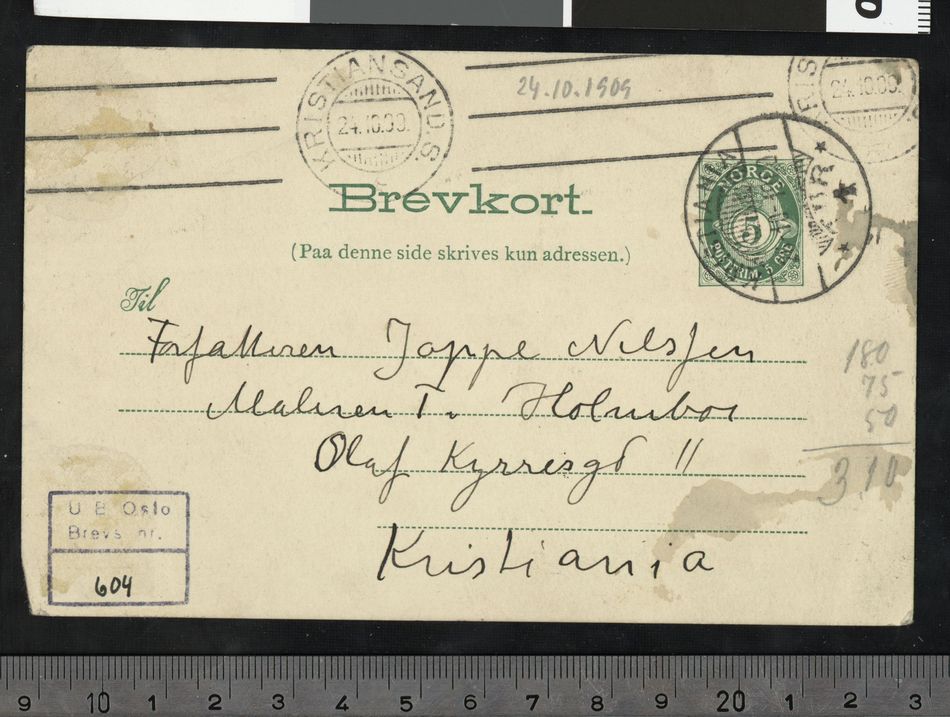 KRISTIANSAND.S.
24.10.09.
24.10.1909
KRIS
24.10.09.
Brevkort.
(Paa denne side skrives kun adressen.)
NORGE
5
POSTFRIM. 5 ØRE
Til
Forfatteren Jappe Nilssen
Maleren T. Holmboe
Olaf Kyrresgd 11
Kristiania
180
75
50
3,10
U B Oslo
Brevs. nr.
604
9 10 1 2 3 4 5 6 7 8 9 20 1 2 3